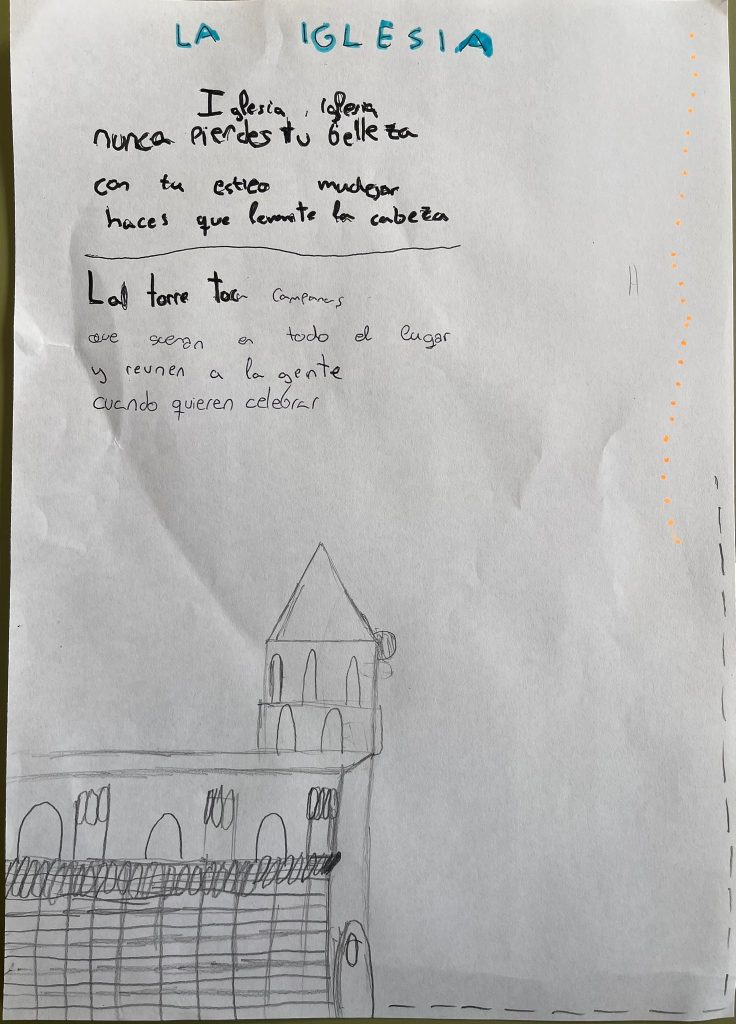 LA IGLESIA
Iglesia, iglesia
nunca pierdes tu belleza
con tu estilo mudejar
haces que levante la cabeza
La torre toca campanas
que suenan en todo el lugar
y reunen a la gente
cuando quieren celebrar
H